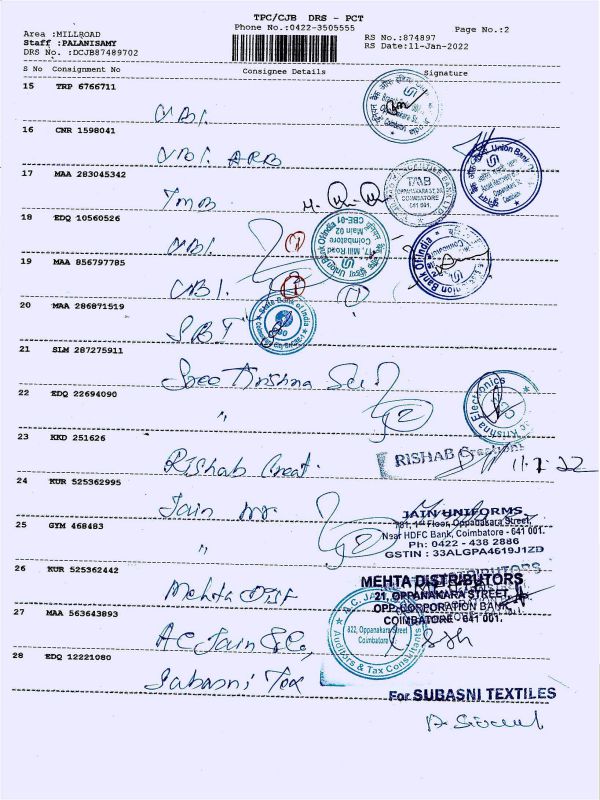 TPC/CJB DRS - PCT
Phone No.:0422-3505555
Page No.:2
Area :MILLROAD
Staff :PALANISAMY
DRS No. :DCJB87489702
RS No.:874897
RS Date:11-Jan-2022
S No Consignment No Consignee Details Signature
15 TRP 6766711
UBI.
16 CNR 1598041
UBI. ARB
Union Bank
17 MAA 283045342
TMB
TMB
OPPANAKARA ST,
COIMBATORE
641 001.
18 EDQ 10560526
UBI.
1
Union Bank Of India
17, Mill Road
Coimbatore
Main 02
CBE-01
Union Bank Of India
Coimbatore
19 MAA 856797785
UBI.
1
1
20 MAA 286871519
SBI
State Bank of India
21 SLM 287275911
Sree Krishna
22 EDQ 22694090
"
2
Krishna Electronics
23 KKD 251626
Rishab Creat.
RISHAB Creations
11.1.22
24 KUR 525362995
Jain
JAIN UNIFORMS
781, 1st Floor, Oppanakara Street,
Near HDFC Bank, Coimbatore - 641 001.
Ph: 0422 - 438 2886
GSTIN : 33ALGPA4619J1ZD
25 GYM 468483
"
2
26 KUR 525362442
Mehta Dist
MEHTA DISTRIBUTORS
21, OPPANAKARA STREET,
OPP. CORPORATION BANK,
COIMBATORE - 641 001.
27 MAA 563643893
AC Jain & Co,
822, Oppanakara Street
Coimbatore
Auditors & Tax Consultants
28 EDQ 12221080
Subasni Tex
For SUBASNI TEXTILES